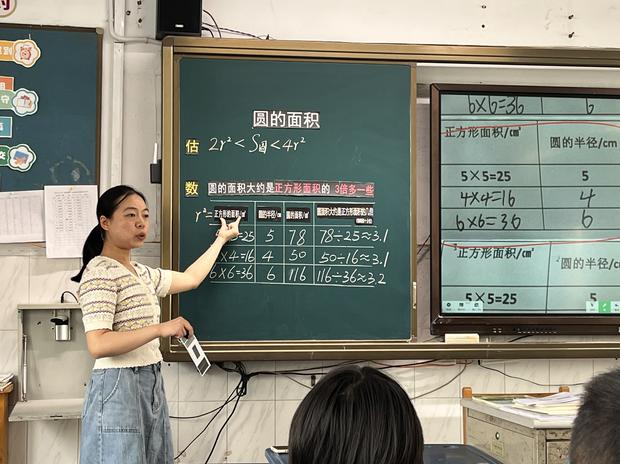 圆的面积
估 2r²<S圆<4r²
数 圆的面积大约是正方形面积的 3倍多一些
r²= 正方形的面积/㎠ 圆的半径/㎝ 圆的面积/㎠
=25 5 78 78÷25≈3.1
×4=16 4 50 50÷16≈3.1
6×6=36 6 116 116÷36≈3.2
6×6=36 6
正方形面积/㎠ 圆的半径/cm
5×5=25 5
4×4=16 4
6×6=36 6
正方形面积/㎠ 圆的半径/c
5×5=25 5